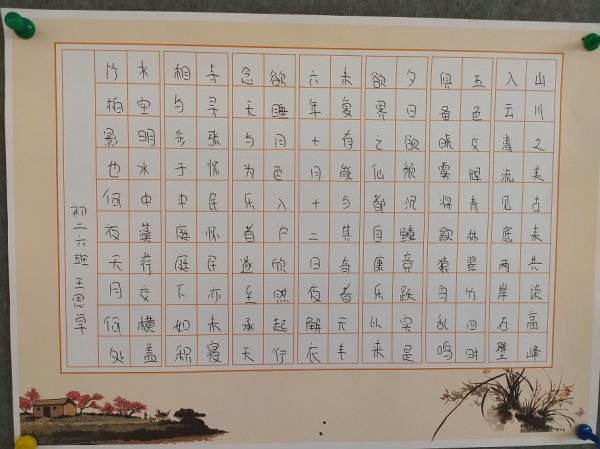 山川之美古来共谈高峰
入云清流见底两岸石壁
五色交辉青林翠竹四时
俱备晓雾将歇猿鸟乱鸣
夕日欲颓沉鳞竞跃实是
欲界之仙都自康乐以来
未复有能与其奇者元丰
六年十月十二日夜解衣
欲睡月色入户欣然起行
念无与为乐者遂至承天
寺寻张怀民怀民亦未寝
相与步于中庭庭下如积
水空明水中藻荇交横盖
竹柏影也何夜无月何处
初二六班 王思草